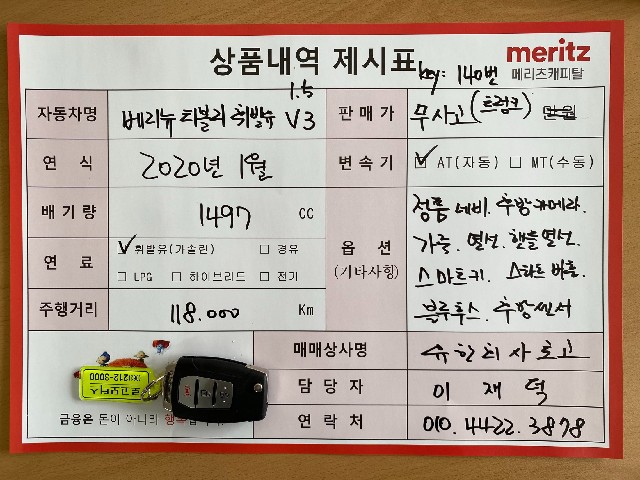 상품내역 제시표
meritz
메리츠캐피탈
key: 140번
자동차명 베리뉴 티볼리 휘발유 1.5 V3
판매가 무사고 (트렁크) 만원
연 식 2020년 1월
변속기 ☑ AT(자동) ☐ MT(수동)
배기량 1497 CC
연 료 ☑ 휘발유(가솔린) ☐ 경유
☐ LPG ☐ 하이브리드 ☐ 전기
옵 션
(기타사항)
정품 네비. 후방카메라.
가죽. 열선. 핸들열선.
스마트키. 스타트 버튼.
블루투스. 후방센서
주행거리 118.000 Km
매매상사명
담 당 자 이 재 덕
연 락 처 010. 4422. 3878
212-3000
금융은 돈이 아니라